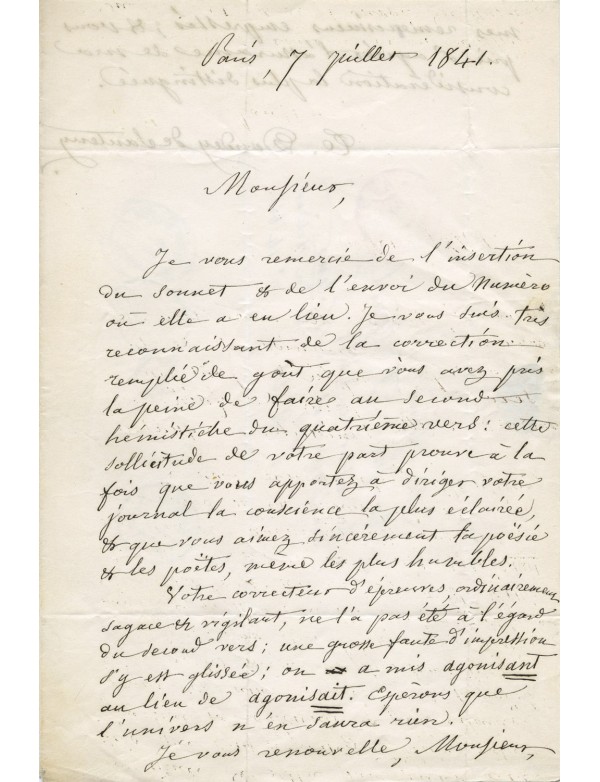 Paris, 7 juillet 1841.
Monsieur,
Je vous remercie de l'insertion
du sonnet & de l'envoi du Numèro
où elle a eu lieu. Je vous suis très
reconnaissant de la correction
remplie de goût que vous avez pris
la peine de faire au second
hémistiche du quatrième vers: cette
sollicitude de votre part prouve à la
fois que vous apportez à diriger votre
journal la conscience la plus éclairée,
& que vous aimez sincèrement la poësie
& les poëtes, même les plus humbles.
Votre correcteur d'épreuves, ordinairement
sagace & vigilant, ne l'a pas été à l'égard
du second vers; une grosse faute d'impression
s'y est glissée; on a mis agonisant
au lieu de agonisait. Espèrons que
l'univers n'en saura rien.
Je vous renouvelle, Monsieur,